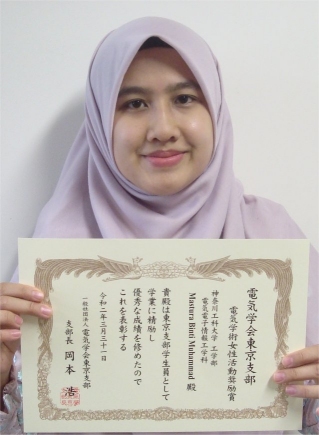 電気学会東京支部
電気学術女性活動奨励賞
神奈川工科大学 工学部
電気電子情報工学科
Mastura Binti Muhammad 殿
貴殿は東京支部学生員として
学業に精励し
優秀な成績を修めたので
これを表彰する
令和二年三月三十一日
一般社団法人 電気学会東京支部
支部長 岡本 浩